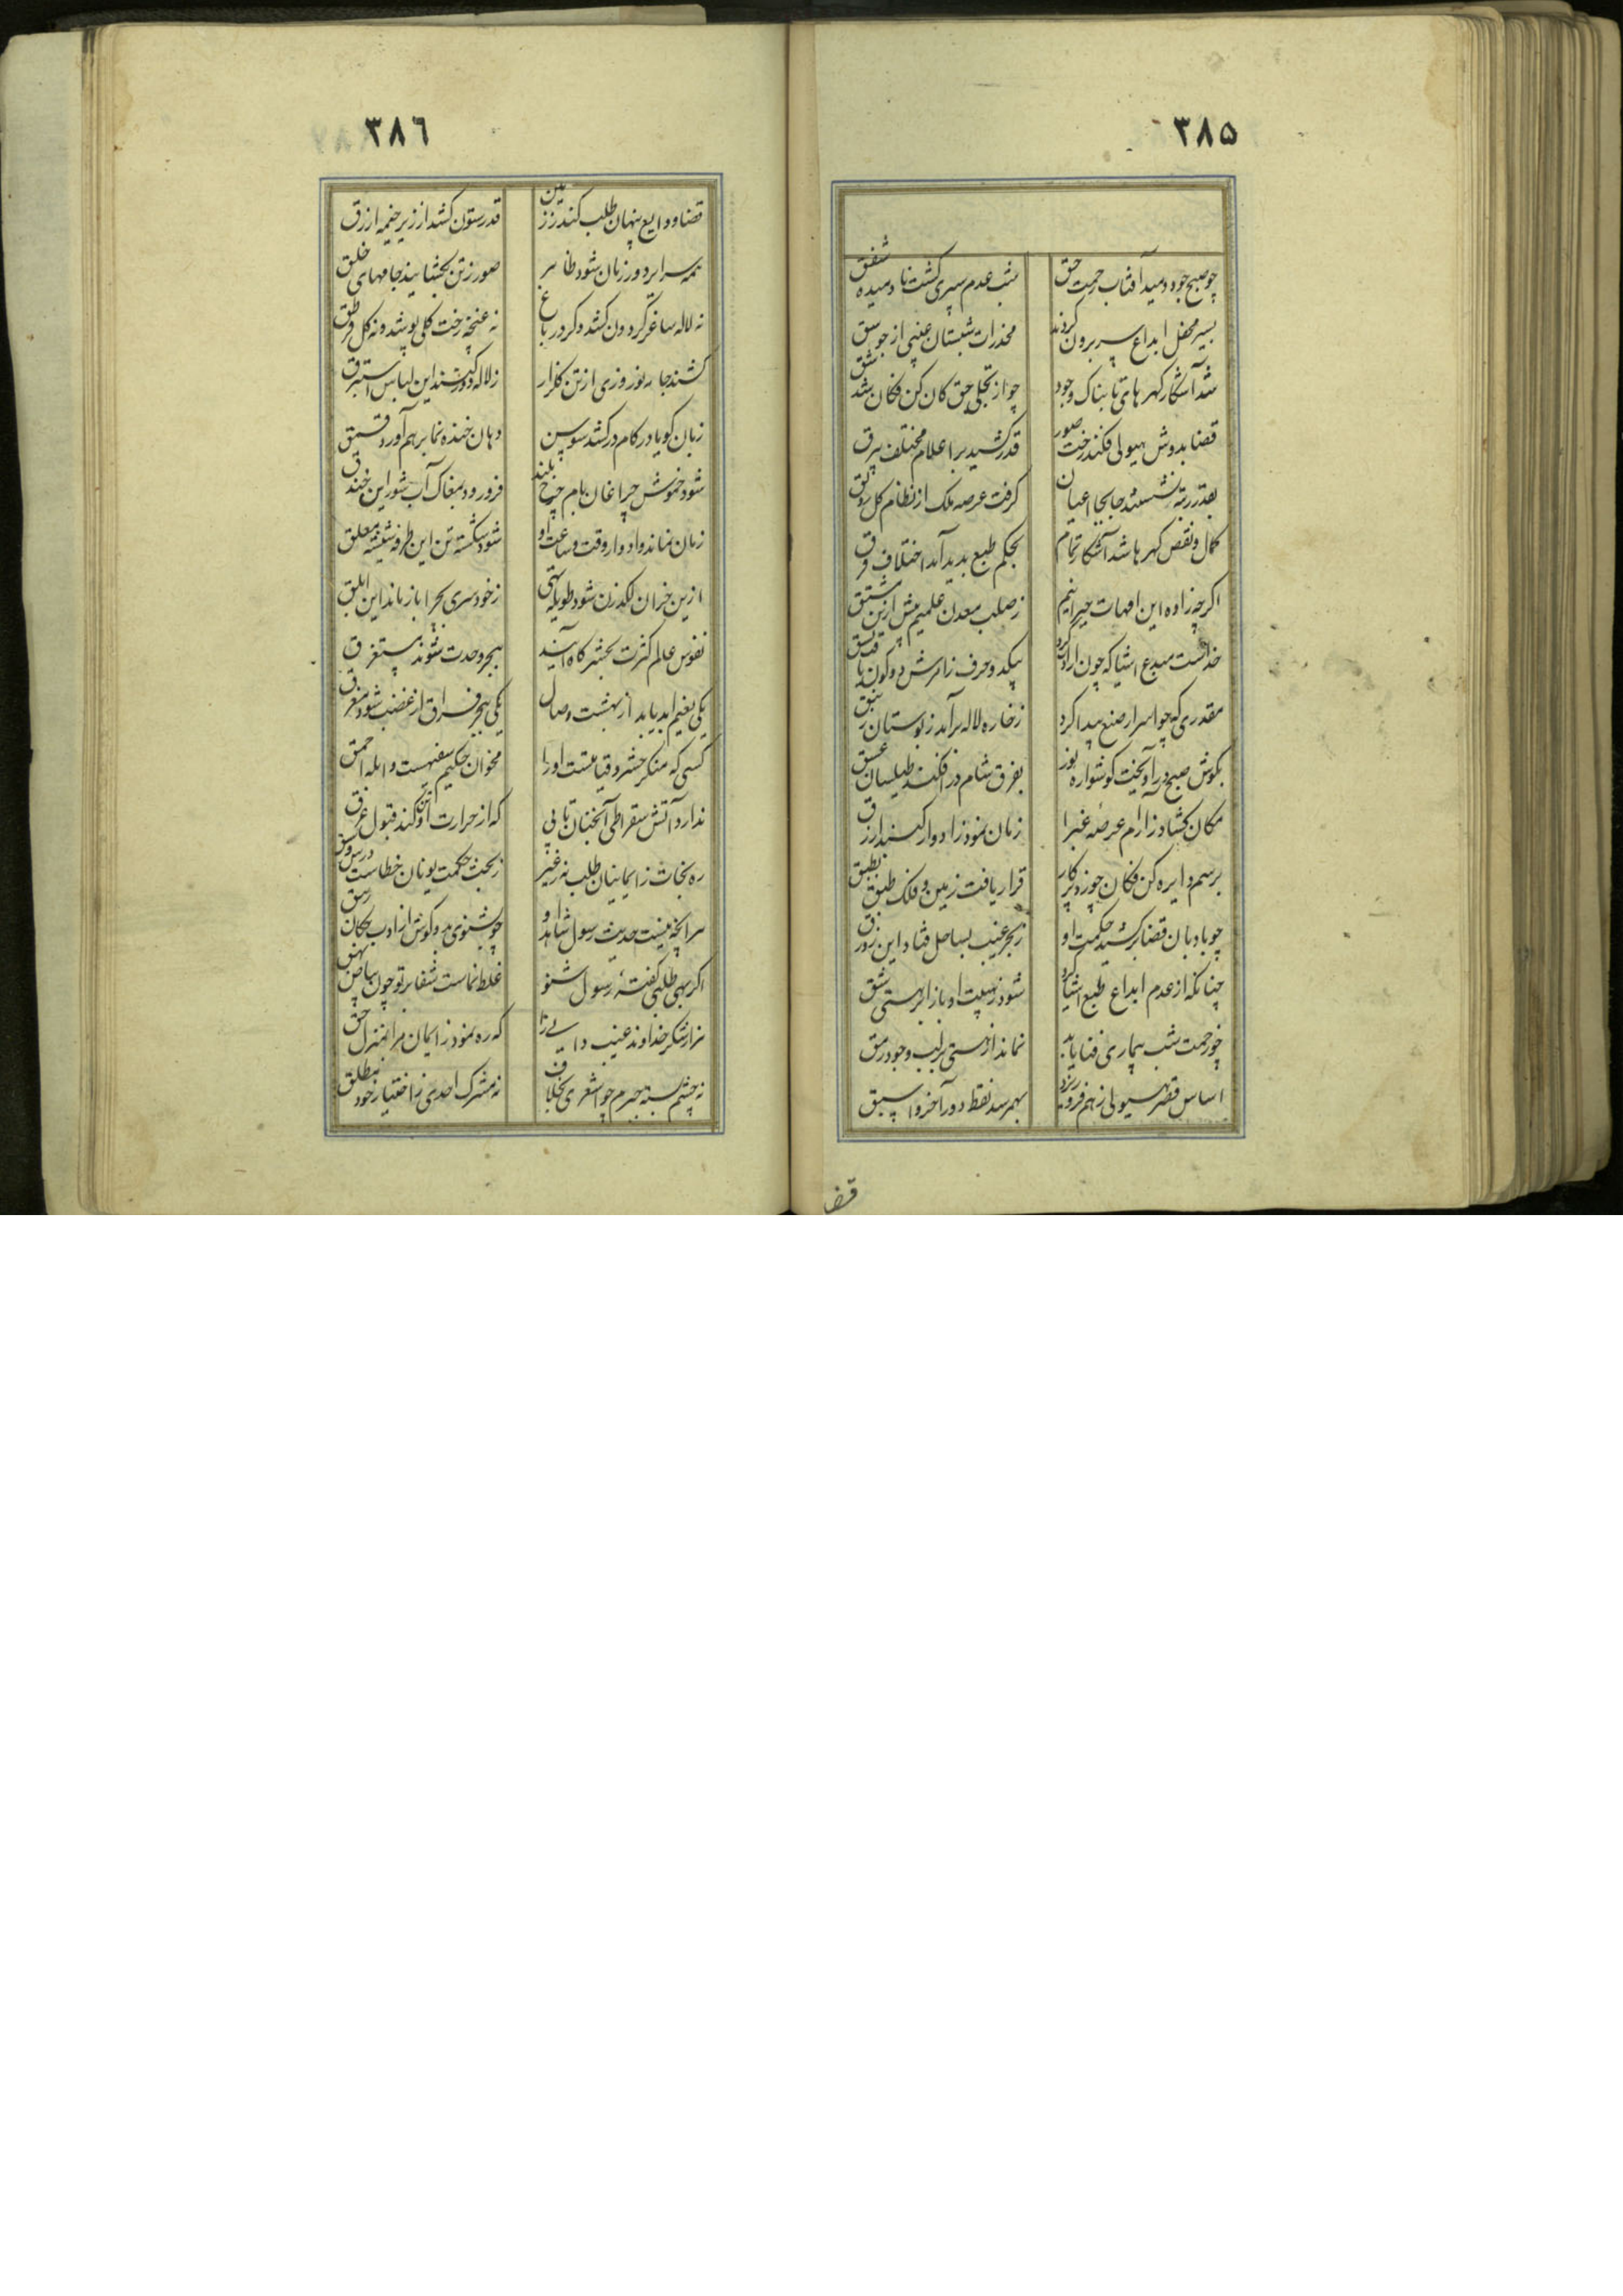 ۳۸۵
چو صبح جود دمید آفتاب رحمت حق شب عدم سپری گشت نادمیده شفق
بسیر محفل ابداع سر برون کردند مخدرات شبستان غیبی از جوسق
شد آشکار گهرهای تابناک وجود چو از تجلی حق کان کن فکان شد شق
قضا بدوش هیولی فکند رخت صور قدر کشید بر اعلام مختلف بیرق
بقدر رتبه نشستند جابجا اعیان گرفت عرصه ملک از نظام کل رونق
کمال و نقص گهرها شد آشکار تمام بحکم طبع پدید آمد اختلاف فرق
اگرچه زاده این امهات چیر اینیم ز صلب معدن علمیم پیش ازین مشتق
خداست مبدع اشیا که چون اراده کرد بیکدو حرف ز امرش دو کون یافت نسق
مقدری که چو اسرار صنع پیدا کرد ز خاره لاله برآمد ز بوستان زنبق
بگوش صبح درآویخت گوشواره نور بفرق شام درافکند طیلسان غسق
مکان گشاد ز آرام عرصه غبرا زمان نمود ز ادوار گنبد ازرق
برسم دایره کن فکان چو زد پرکار قرار یافت زمین و فلک طبق بطبق
چو بادبان قضا برکشید حکمت او ز بحر غیب بساحل فتاد این زورق
چنانکه از عدم ابداع طبع اشیا کرد شود ز هیبت او باز ابر هستی شق
چو رحمت شب بیماری فنا یابد نماند از هستی بر لب وجود رمق
اساس قصر هیولی ز هم فرو ریزد بهم رسد نقط دور آخر و اسبق
قضا
۳۸۶
قضا ودایع پنهان طلب کند ز زمین قدر ستون کشد از زیر خیمه ازرق
همه سرایر دور زمان شود ظاهر صور ز تن بگشایند جامهای خلق
نه لاله ساغر گردون کشد دگر در باغ نه غنچه رخت کلی پوشد و نه گل قرطق
کشند جامه نوروزی از تن گلزار ز لاله دور کنند این لباس استبرق
زبان گویا در کام درکشد سوسن دهان خنده نما برهم آورد فستق
شود خموش چراغان بام چرخ بلند فرو رود بمغاک آب شور این خندق
زمان نماند و ادوار وقت و ساعت او شود شکسته تن این طرفه شیشه معلق
ازین خران لگدزن شود طویله تهی ز خودسری بچرا باز ماند این ابلق
نفوس عالم کثرت بحشرگاه آیند ببحر وحدت شوند مستغرق
یکی نعیم ابد یابد از بهشت وصال یکی ببحر فراق از غضب شود مغرق
کسی که منکر حشر و قیامتست او را مخوان حکیم سفیهست و ابله احمق
ندارد آتش سقراطی آنچنان تابی که از حرارت او تن کند قبول عرق
ره نجات ز ایمانیان طلب نه ز غیر ز بحث حکمت یونان خطاست درس و سبق
هر آنچه نیست حدیث رسول شاهد او چو بشنوی مده گوش از ادب بحکان رمق
اگر بهی طلبی گفته رسول شنو غلط نماست شفا بر تو چون بیاض بهق
هزار شکر خداوند غیب دانی را که ره نمود ز ایمان مرا بمنزل حق
نه چشم بسته بجبرم چو اشعری بخلاف نه مشرک احدی ز اختیار خود مطلق